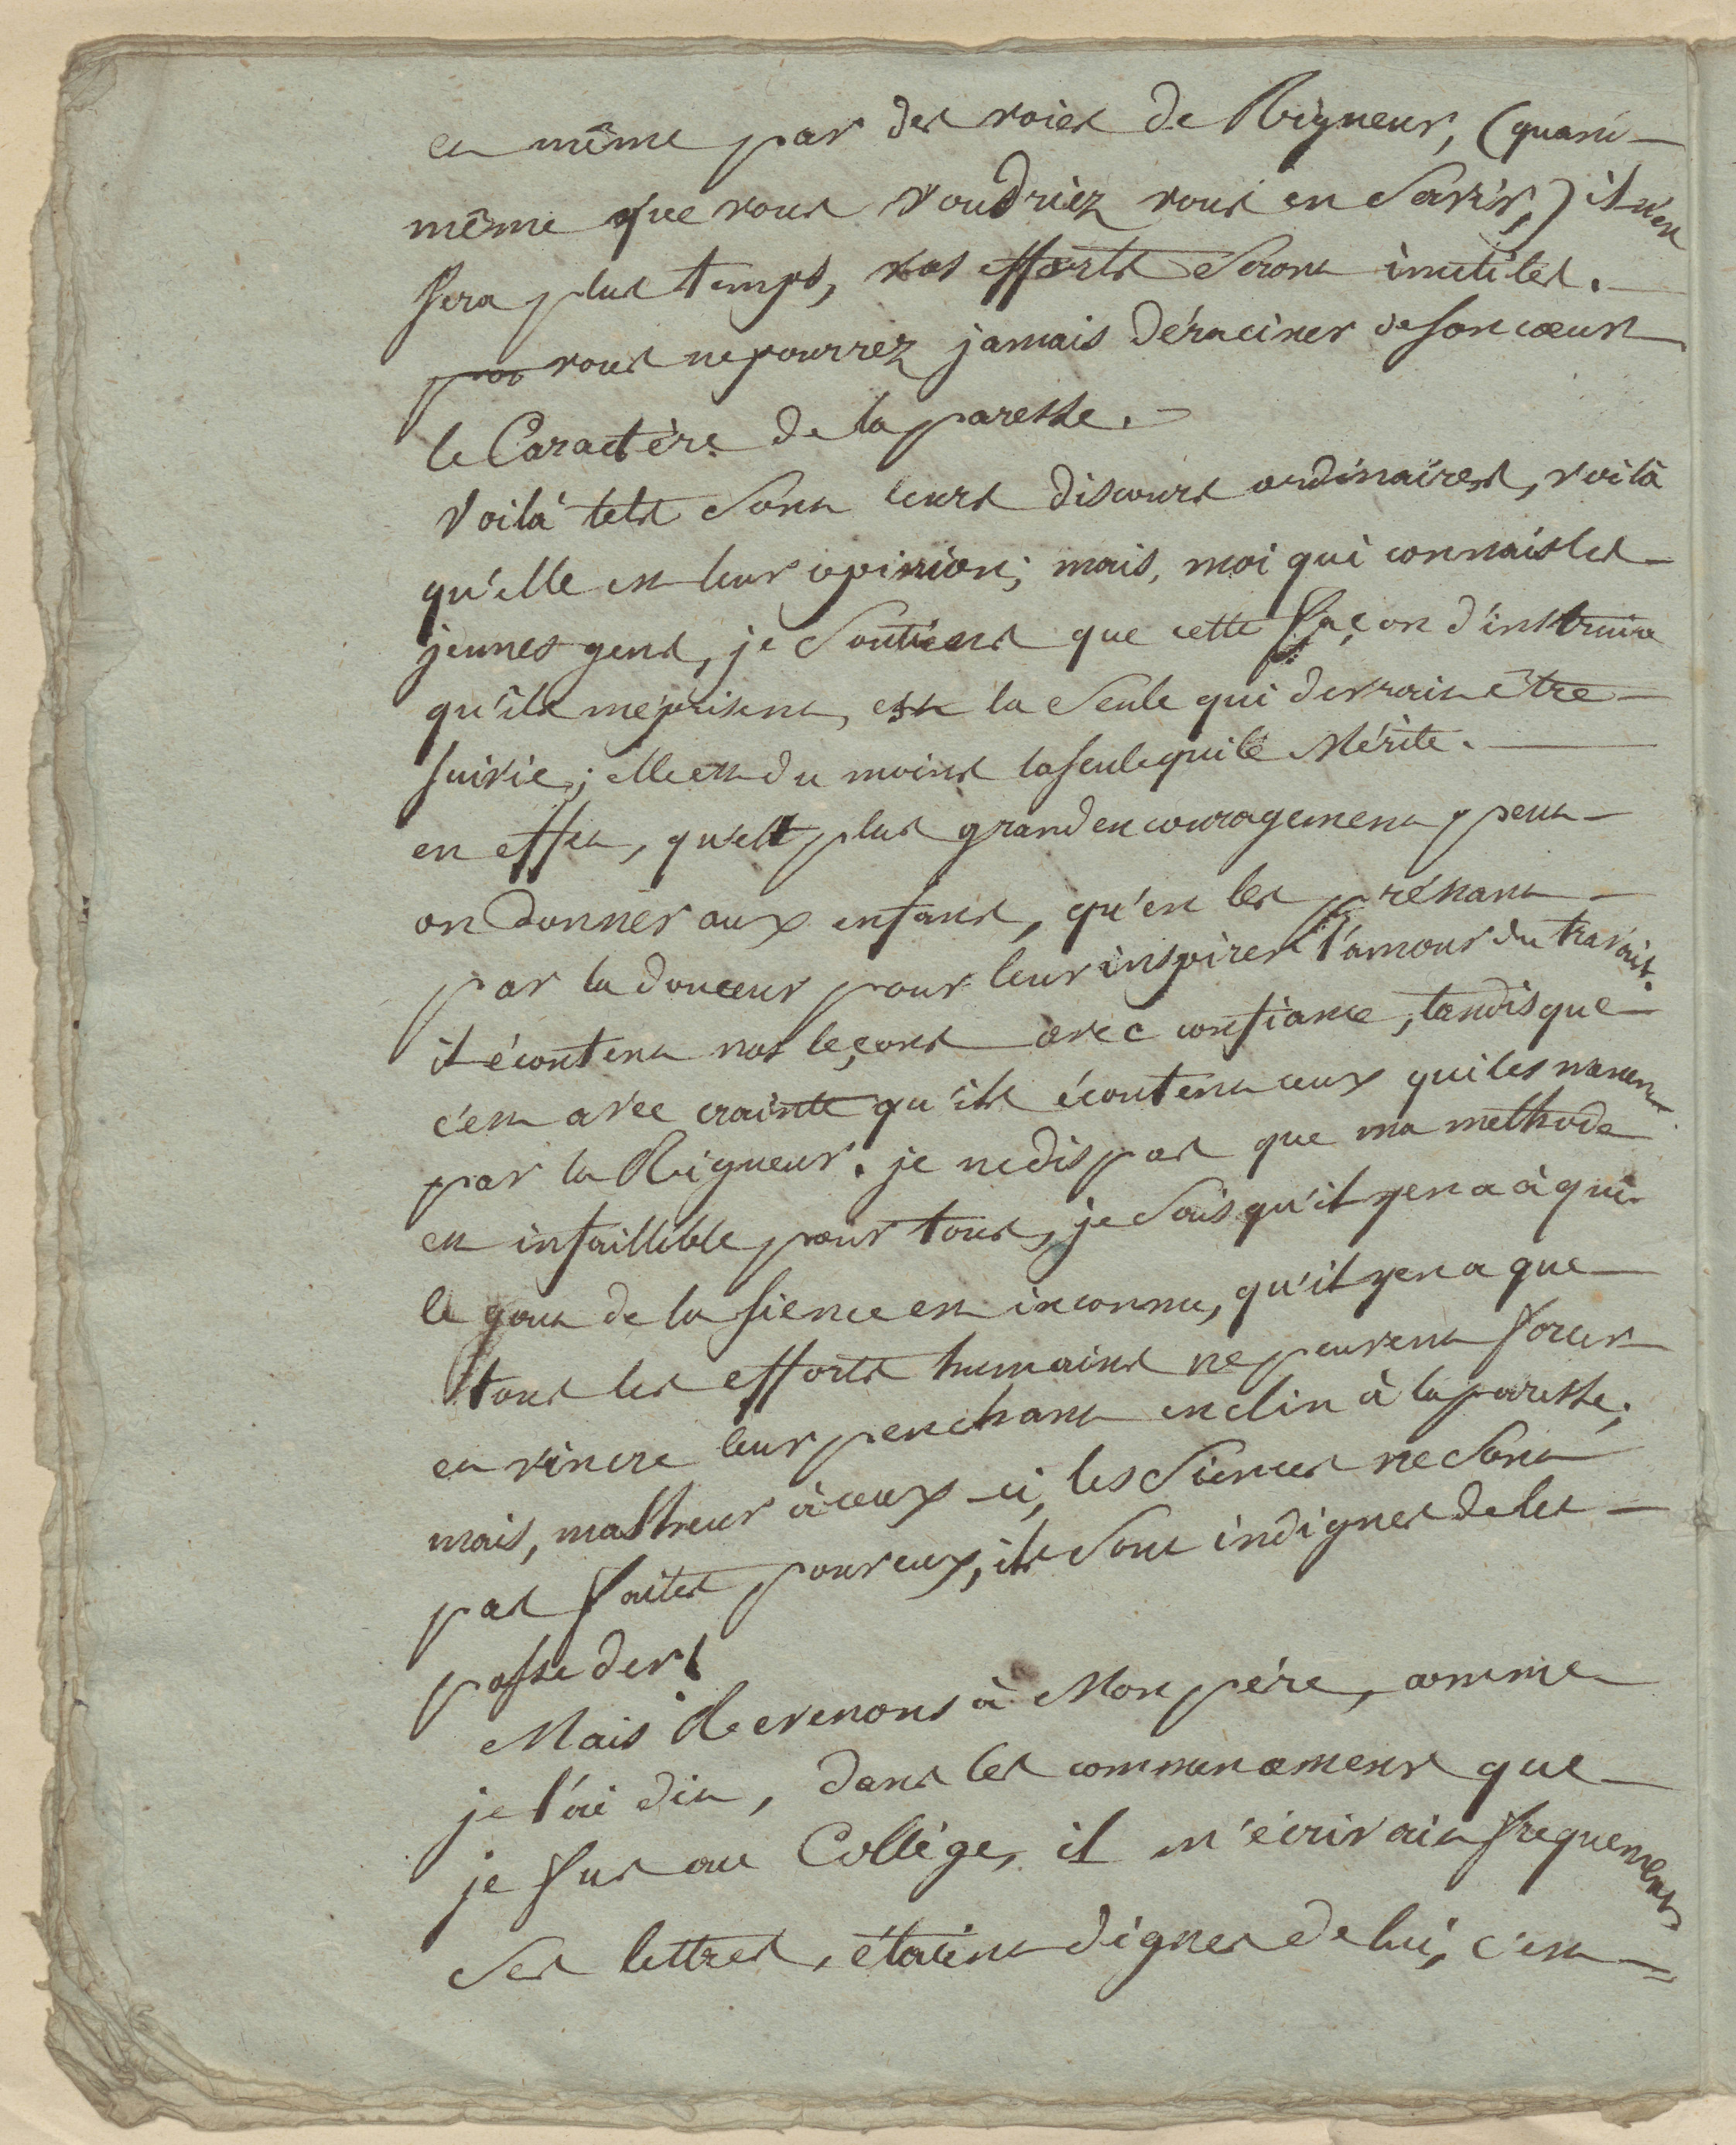 et même par des voies de Rigueur, (quant-
même que vous voudriez vous en servir,) il n'en
sera plus temps, vos efforts seront inutiles.
vous ne pourrez jamais déraciner de son cœur
le Caractère de la paresse.
Voilà tels sont leurs discours ordinaires, voilà
qu'elle est leur opinion; mais, moi qui connais les
jeunes gens, je soutiens que cette façon d'instruire
qu'ils meprisent, est la seule qui devrait être
suivie; elle est du moins la seule qui le Mérite.
en effet, quelt plus grand encouragement peut-
on donner aux enfants, qu'en les prénant
par la douceur pour leur inspirer l'amour du travail.
il écoutent nos leçons avec confiance, tandis que
c'est avec crainte qu'ils écoutent ceux qui les menent
par la Rigueur. je ne dis pas que ma methode
est infaillible pour tous, je sais qu'il y en a à qui
le gout de la sience est inconnu, qu'il y en a que
tous les efforts humains ne peuvent forcer
et vincre leur penchant enclin à la paresse;
mais, malheur à ceux-ci, les siences ne sont
pas faites pour eux, ils sont indignes de les
posseder!
Mais Revenons à Mon père, comme
je l'ai dit, dans les commencements que
je fus au Collège, il m'écrivait frequement
ses lettres, étaient dignes de lui, c'est=